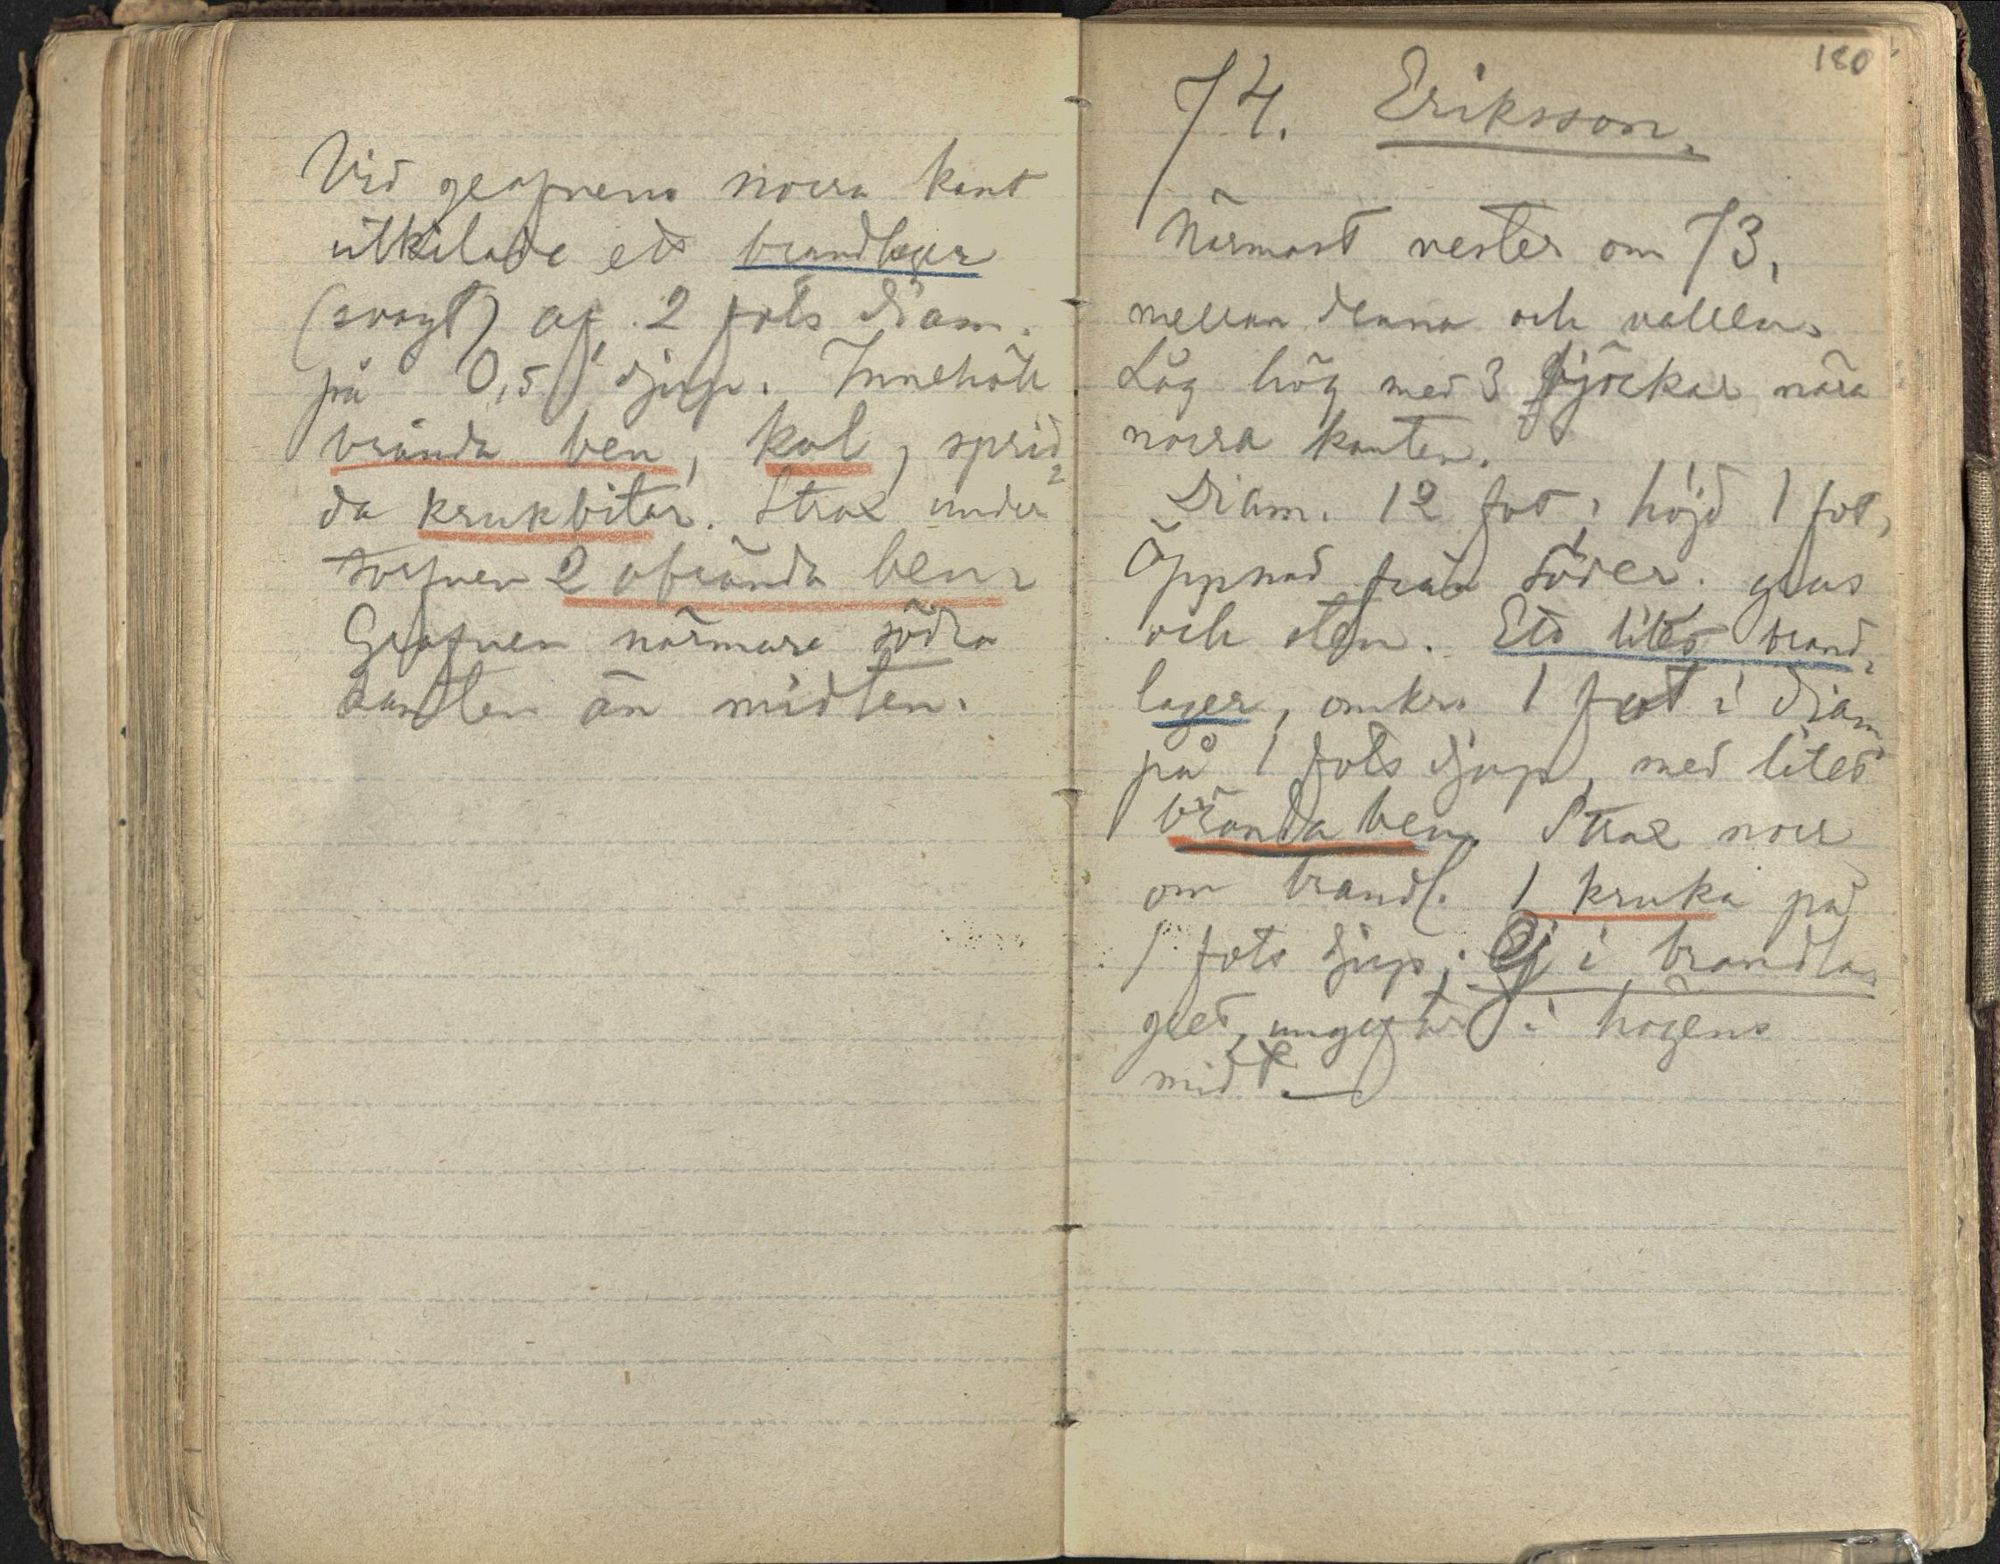 Vid grafvens norra kant
utkilade ett brandlager
(svagt) af 2 fots diam.
på 0,5 f djup. Innehöll
brända ben, kol, sprid-
da krukbitar. Strax under
torfven 2 obrända ben.
Grafven närmare södra
kanten än midten.
180
74. Eriksson.
Närmast vester om 73,
mellan denna och vallen.
Låg hög med 3 björkar nära
norra kanten.
Diam. 12 fot, höjd 1 fot,
Öppnad från söder. grus
och sten. Ett litet brand-
lager, omkr. 1 fot i diam
på 1 fots djup, med litet
brända ben. Strax norr
om brandl. 1 kruka på
1 fots djup; ej i brandla-
gret, ungefär i högens
midt.